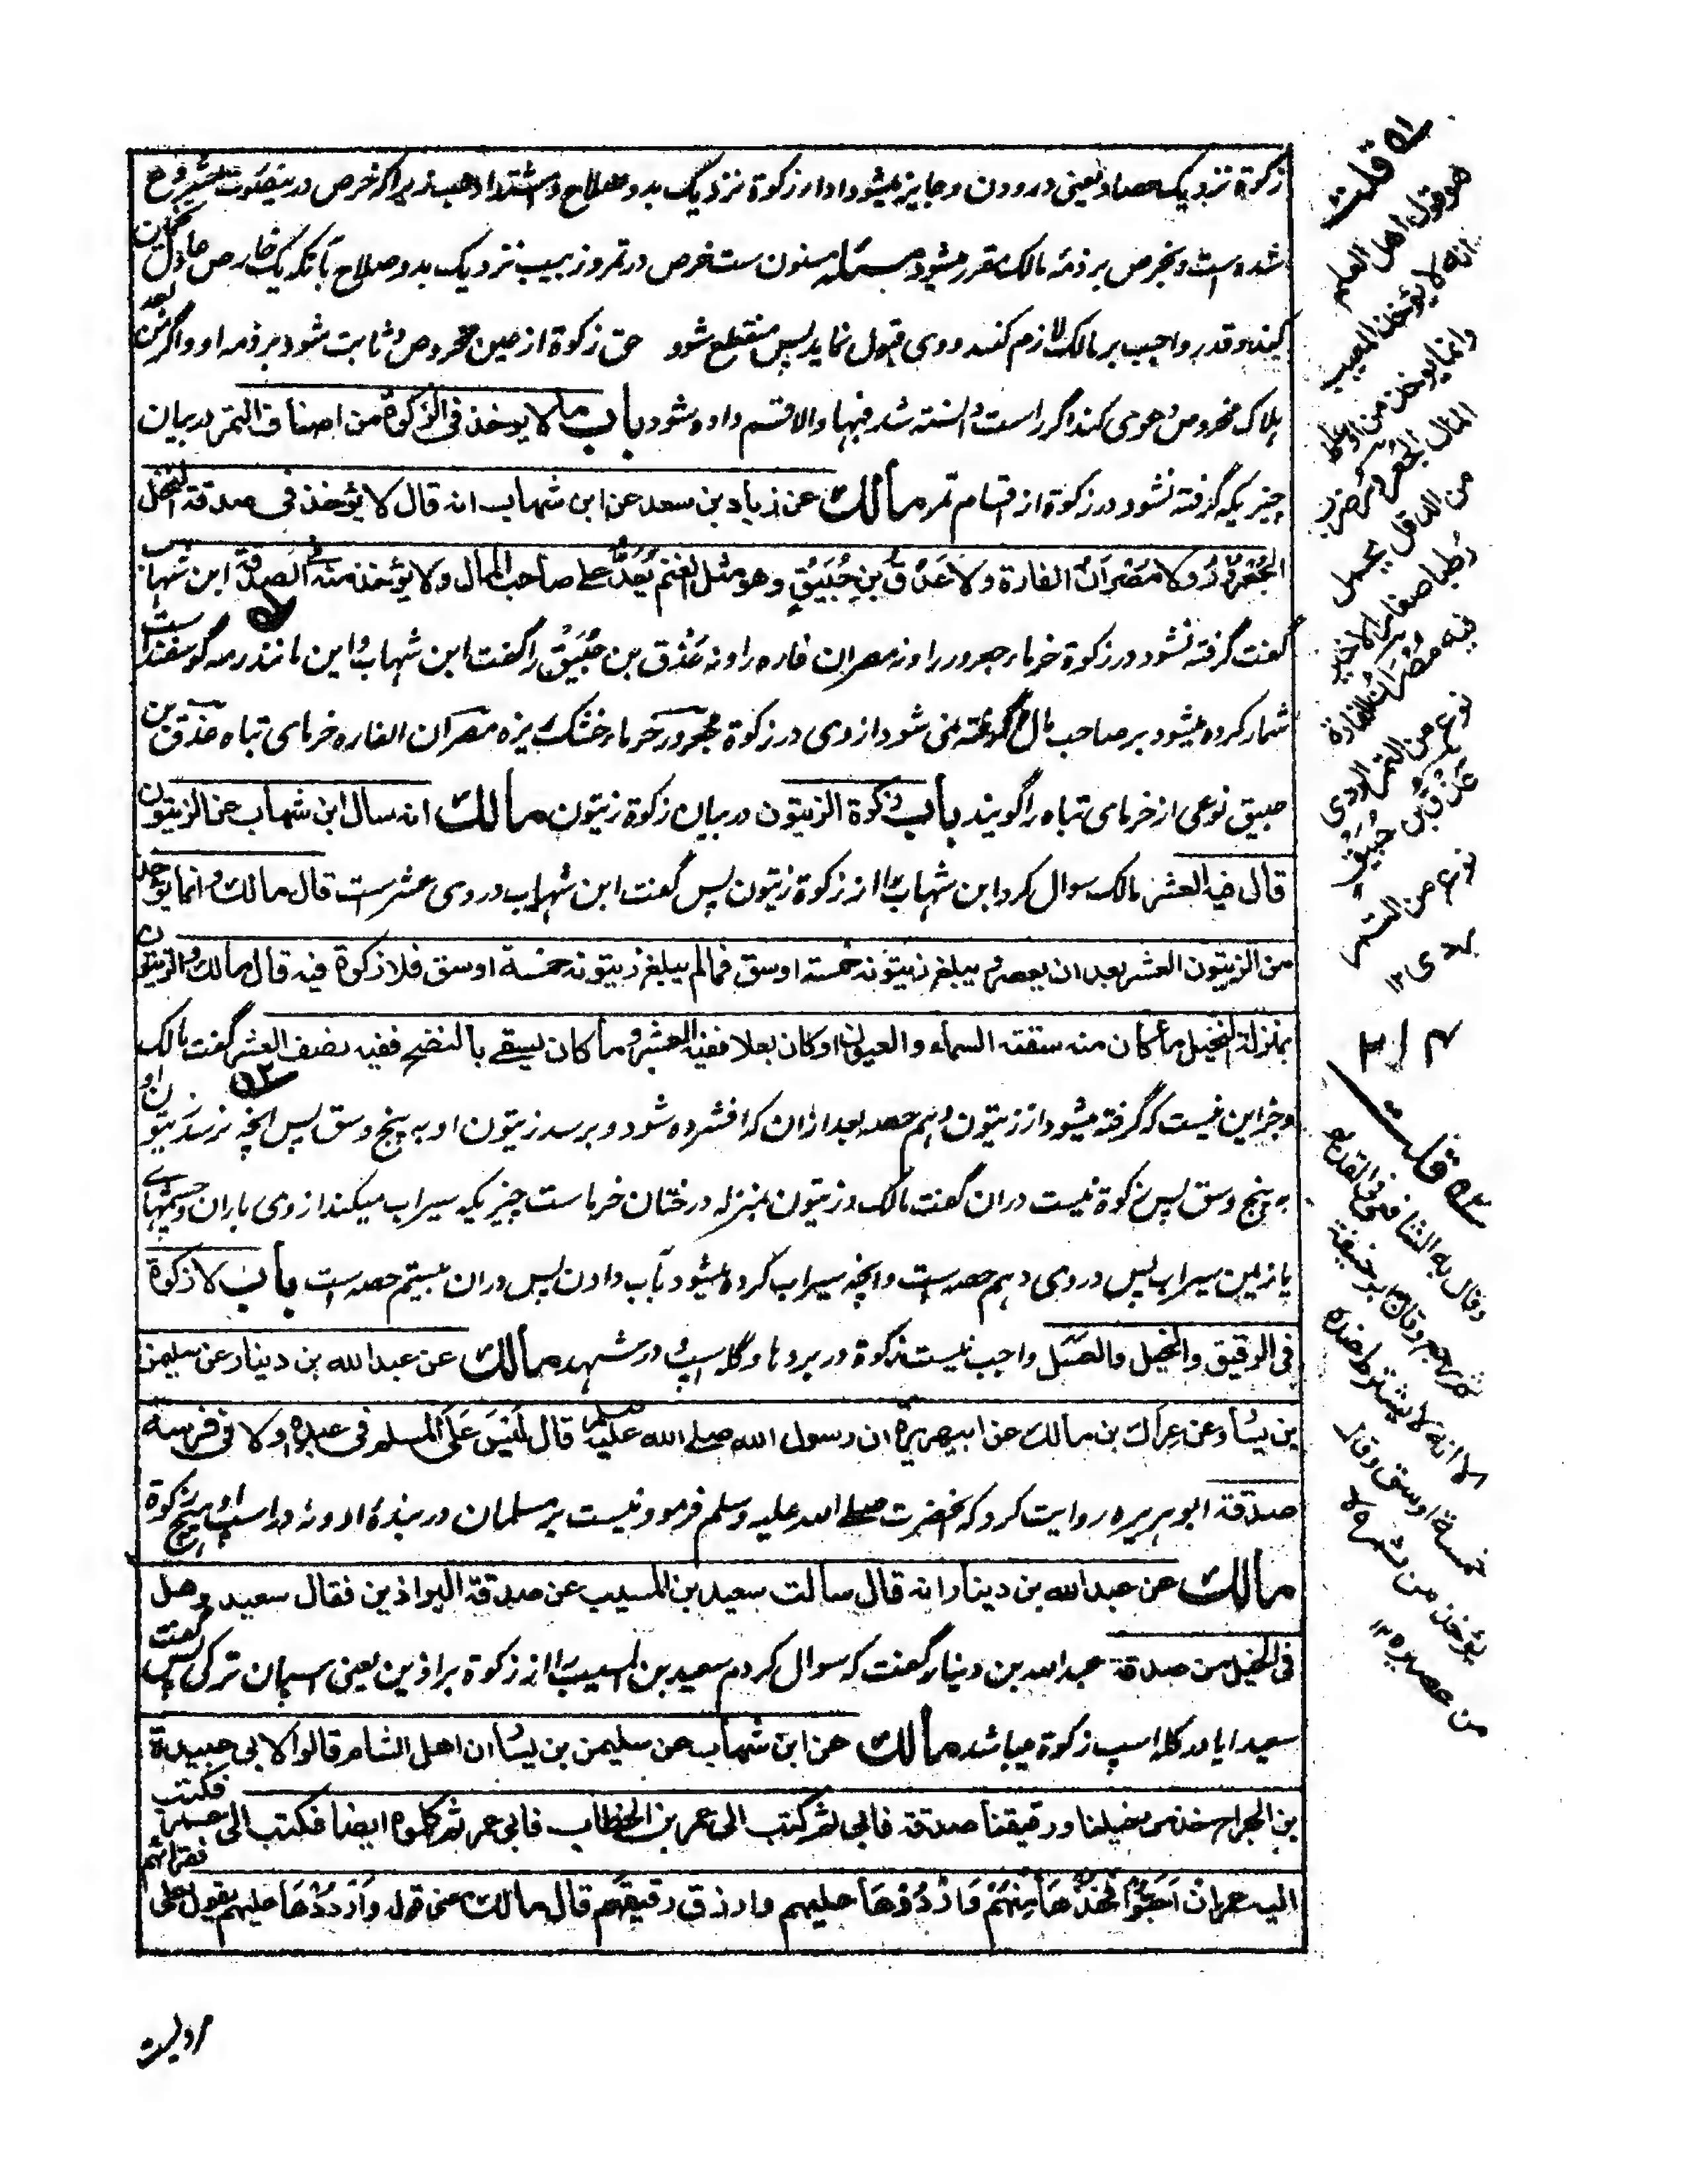 زکوة نزدیک حصاد یعنی درودن و جایز میشود ادار زکوة نزدیک بدو صلاح و اشتداد حب زیراکه خرص درینصورت مشروع
شده است و بخرص بر ذمه مالک مقرر میشود مسئله مسنون ست خرص در تمر و زبیب نزدیک بدو صلاح بآنکه یک خارص عادل
کند و قدر واجب بر مالک لازم کند و وی قبول نماید پس منقطع شود حق زکوة از عین مخروص و ثابت شود بر ذمه او و اگر
هلاک مخروص دعوی کند اگر راست دانسته شد فبها والا قسم داده شود باب ما لا یوخذ فی الزکوة من اصناف التمر در بیان
چیزیکه گرفته نشود در زکوة از اقسام تمر مالک عن زیاد بن سعد عن ابن شهاب انه قال لا یؤخذ فی صدقة النخل
الجُعْرُوْرُ ولا مُصْرَانُ الفارة ولا عَذْقُ بنِ حُبَیْقٍ وهو مثل الغنم یُعَدُّ علی صاحب المال ولا یؤخذ منه الصدقة ابن شهاب
گفت گرفته نشود در زکوة خرما جعرور را و نه مصران فاره را و نه عَذْق بن حُبَیْق را گفت ابن شهاب و این مانند رمه گوسفند است
شمار کرده میشود بر صاحب مال و گرفته نمی شود از وی در زکوة جعرور خرماء خشک ریزه مصران الفاره خرمای تباه عذق بن
حبیق نوعی از خرمای تباه را گویند باب زکوة الزیتون در بیان زکوة زیتون مالک انه سال ابن شهاب عن الزیتون
قال فیه العشر مالک سوال کرد ابن شهاب را از زکوة زیتون پس گفت ابن شهاب در وی عشر ست قال مالک وانما یوخذ
من الزیتون العشر بعد ان یعصر ویبلغ زیتونه خمسة اوسق فما لم یبلغ زیتونه خمسة اوسق فلا زکوة فیه قال مالک والزیتون
بمنزلة النخیل ما کان منه سقته السماء والعیون او کان بعلا ففیه العشر وما کان یسقی بالنضح ففیه نصف العشر گفت مالک
و جز این نیست که گرفته میشود از زیتون دهم حصه بعد ازان که افشرده شود و برسد زیتون او به پنج وسق پس انچه نرسد زیتون او
به پنج وسق پس زکوة نیست دران گفت مالک و زیتون بمنزله درختان خرما ست چیزیکه سیراب میکند از وی باران و چشمهای
یا زمین سیراب پس در وی دهم حصه است و انچه سیراب کرده میشود بآب دادن پس دران بیستم حصه است باب لا زکوة
فی الرقیق والخیل والعسل واجب نیست زکوة در بردها و گله اسپ و در شهد مالک عن عبدالله بن دینار عن سلیمن
بن یسار عن عراك بن مالك عن ابی هریرة ان رسول الله صلی الله علیه وسلم قال لَیْسَ عَلَی المسلم فی عبده ولا فی فرسه
صدقة ابو هریره روایت کرد که آنحضرت صلی الله علیه وسلم فرمود نیست بر مسلمان در بندهٔ او و نه در اسپ او هیچ زکوة
مالك عن عبدالله بن دینار انه قال سالت سعید بن المسیب عن صدقة البراذین فقال سعید وهل
فی الخیل من صدقة عبدالله بن دینار گفت که سوال کردم سعید بن المسیب را از زکوة براذین یعنی اسپان ترکی پس گفت
سعید ایا در گله اسپ زکوة میباشد مالك عن ابن شهاب عن سلیمن بن یسار ان اهل الشام قالوا لابی عبیدة
بن الجراح خذ من خیلنا ورقیقنا صدقة فابی ثم کتب الی عمر بن الخطاب فابی عمر ثم کلموه ایضا فکتب الی عمر فکتب
الیه عمر ان اَحَبُّوْا فَخُذْهَا مِنْهُمْ وَارْدُدْهَا علیهم وارزق رقیقهم قال مالك معنی قوله وَارْدُدْهَا علیهم یقول علی فقرائهم
له قلت
هو قول اهل العلم
انه لا یؤخذ المعیب
وانما یوخذ من اوسط
المال الجعرور ضرب
من الدقل یحمل
رطبا صغارا لا خیر
فیه مصران الفارة
نوع من التمر الردی
عذق بن حبیق
نوع من التمر
ردی ۱۲
قلت
وقال به الشافعی فی القدیم
ثم رجع وقال ابو حنیفة
الا انه لا یشترط عنده
خمسة اوسق وقال
یؤخذ من ثمره لا
من عصیره ۱۲